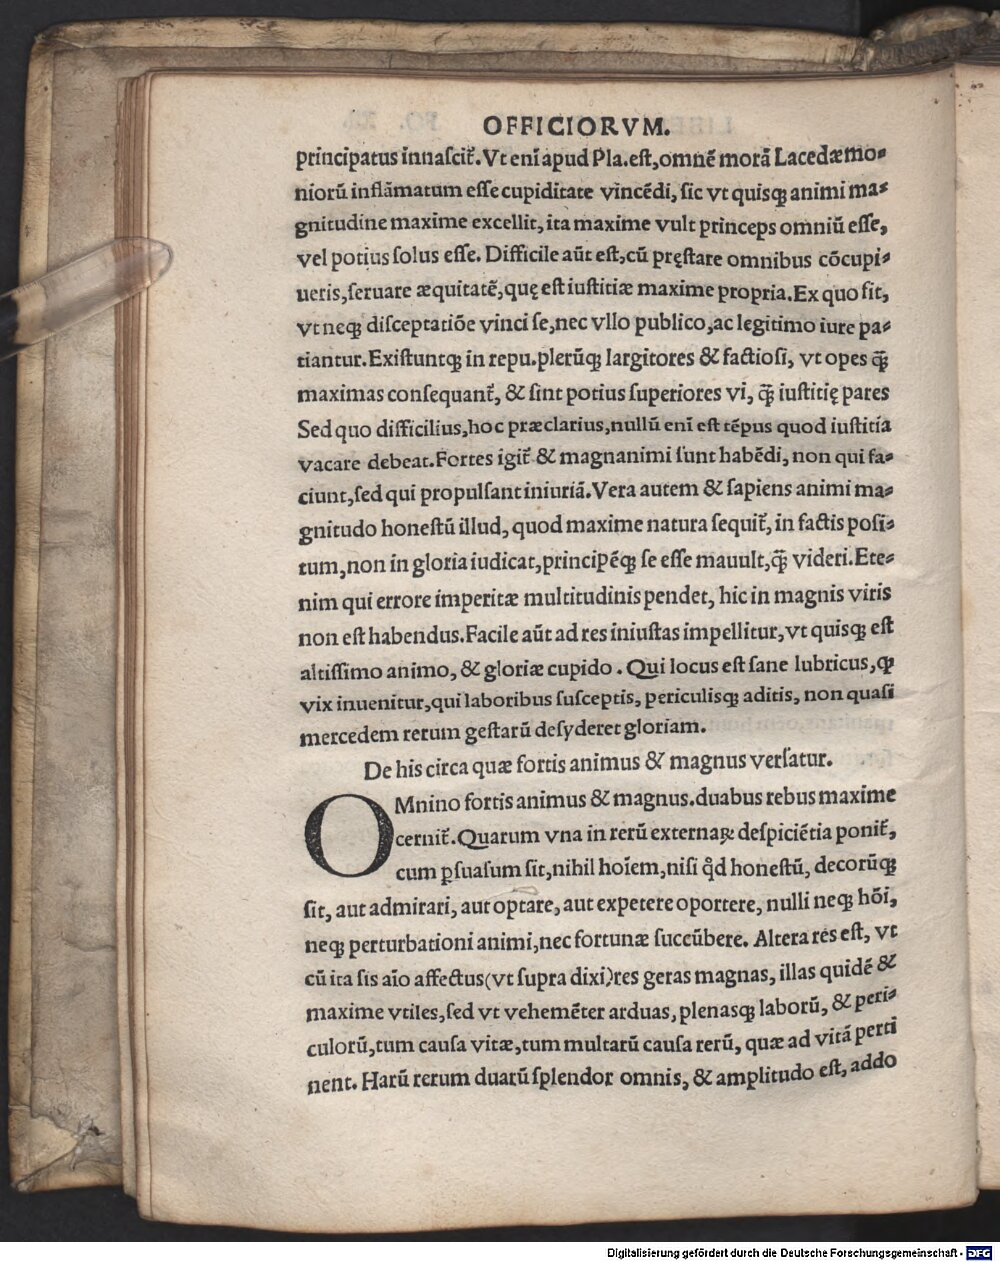 OFFICIORVM.
principatus innaſcit᷑. Vt eni᷑ apud Pla. eſt, omnē morā Lacedæmo⸗
niorū inflāmatum eſſe cupiditate vincēdi, ſic vt quiſqꝫ animi ma⸗
gnitudine maxime excellit, ita maxime vult princeps omniū eſſe,
vel potius ſolus eſſe. Difficile aūt eſt, cū pręſtare omnibus cōcupi⸗
ueris, ſeruare æquitatē, quę eſt iuſtitiæ maxime propria. Ex quo fit,
vt neqꝫ diſceptatiōe vinci ſe, nec vllo publico, ac legitimo iure pa⸗
tiantur. Exiſtuntqꝫ in repu. plerūqꝫ largitores & factioſi, vt opes q̄̃
maximas conſequant᷑, & ſint potius ſuperiores vi, q̄̃ iuſtitię pares
Sed quo difficilius, hoc præclarius, nullū enī eſt tēpus quod iuſtitia
vacare debeat. Fortes igit᷑ & magnanimi ſunt habēdi, non qui fa⸗
ciunt, ſed qui propulſant iniuriā. Vera autem & ſapiens animi ma⸗
gnitudo honeſtū illud, quod maxime natura ſequit᷑, in factis poſi⸗
tum, non in gloria iudicat, principēqꝫ ſe eſſe mauult, q̄̃ videri. Ete⸗
nim qui errore imperitæ multitudinis pendet, hic in magnis viris
non eſt habendus. Facile aūt ad res iniuſtas impellitur, vt quiſqꝫ eſt
altiſſimo animo, & gloriæ cupido. Qui locus eſt ſane lubricus, qꝫ
vix inuenitur, qui laboribus ſuſceptis, periculiſqꝫ aditis, non quaſi
mercedem rerum geſtarū deſyderet gloriam.
De his circa quæ fortis animus & magnus verſatur.
OMnino fortis animus & magnus. duabus rebus maxime
cernit᷑. Quarum vna in rerū externaꝝ deſpiciētia ponit᷑,
cum ꝑſuaſum ſit, nihil hoīem, niſi qͥd honeſtū, decorūqꝫ
ſit, aut admirari, aut optare, aut expetere oportere, nulli neqꝫ hōi,
neqꝫ perturbationi animi, nec fortunæ ſuccūbere. Altera res eſt, vt
cū ita ſis aīo affectus (vt ſupra dixi) res geras magnas, illas quidē &
maxime vtiles, ſed vt vehemēter arduas, plenaſqꝫ laborū, & peri⸗
culorū, tum cauſa vitæ, tum multarū cauſa rerū, quæ ad vitā perti
nent. Harū rerum duarū ſplendor omnis, & amplitudo eſt, addo
Digitalisierung gefördert durch die Deutsche Forschungsgemeinschaft - DFG